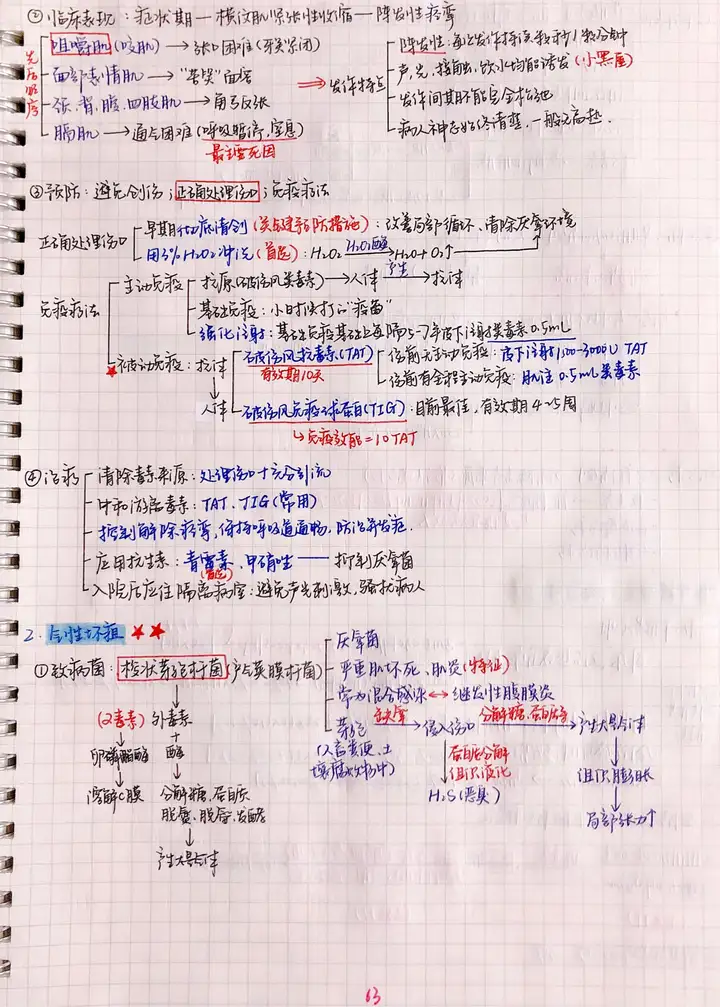 ② 临床表现：症状期—横纹肌紧张性收缩—阵发性痉挛
先后顺序
咀嚼肌(咬肌)→张口困难(牙关紧闭)
面部表情肌→"苦笑"面容
颈、背、腹、四肢肌→角弓反张
膈肌→通气困难(呼吸暂停,窒息)
最主要死因
⇒发作特点
阵发性:每次发作持续数秒/数分钟
声、光、接触、饮水均能诱发(小黑屋)
发作间期不能完全松弛
病人神志始终清楚,一般无高热.
③预防：避免创伤；正确处理伤口；免疫疗法
正确处理伤口
早期彻底清创(关键预防措施)：改善局部循环、清除厌氧环境
用3%H2O2冲洗(首选)：H2O2 H2O2酶→H2O+O2↑
免疫疗法
主动免疫：抗原(破伤风类毒素)→人体 产生→抗体
基础免疫：小时候打的"疫苗"
强化注射：基础免疫基础上每隔5-7年皮下注射类毒素0.5mL
★被动免疫：抗体→人体
破伤风抗毒素(TAT)
有效期10天
伤前无主动免疫：皮下注射1500-3000U TAT
伤前有全程主动免疫：肌注0.5mL类毒素
破伤风免疫球蛋白(TIG)：目前最佳,有效期4~5周
↳免疫效能=10TAT
④治疗
清除毒素来源：处理伤口+充分引流
中和游离毒素：TAT、TIG(常用)
控制解除痉挛,保持呼吸道通畅,防治并发症.
应用抗生素：青霉素、甲硝唑——抑制厌氧菌
(首选)
入院后应住隔离病室：避免声光刺激,骚扰病人
2.气性坏疽★★
①致病菌：梭状芽孢杆菌(产气荚膜杆菌)
厌氧菌
严重肌坏死、肌炎(特征)
常为混合感染↔继发性腹膜炎
芽孢 缺氧→侵入伤口 分解糖、蛋白质→产生大量气体
(人畜粪便、土壤腐败物中)
蛋白质分解
组织液化
H2S(恶臭)
组织膨胀
局部张力↑
(α毒素) 外毒素
+
卵磷脂酶 酶
溶解C膜 分解糖、蛋白质
脱氨、脱羧、发酵
产生大量气体
63